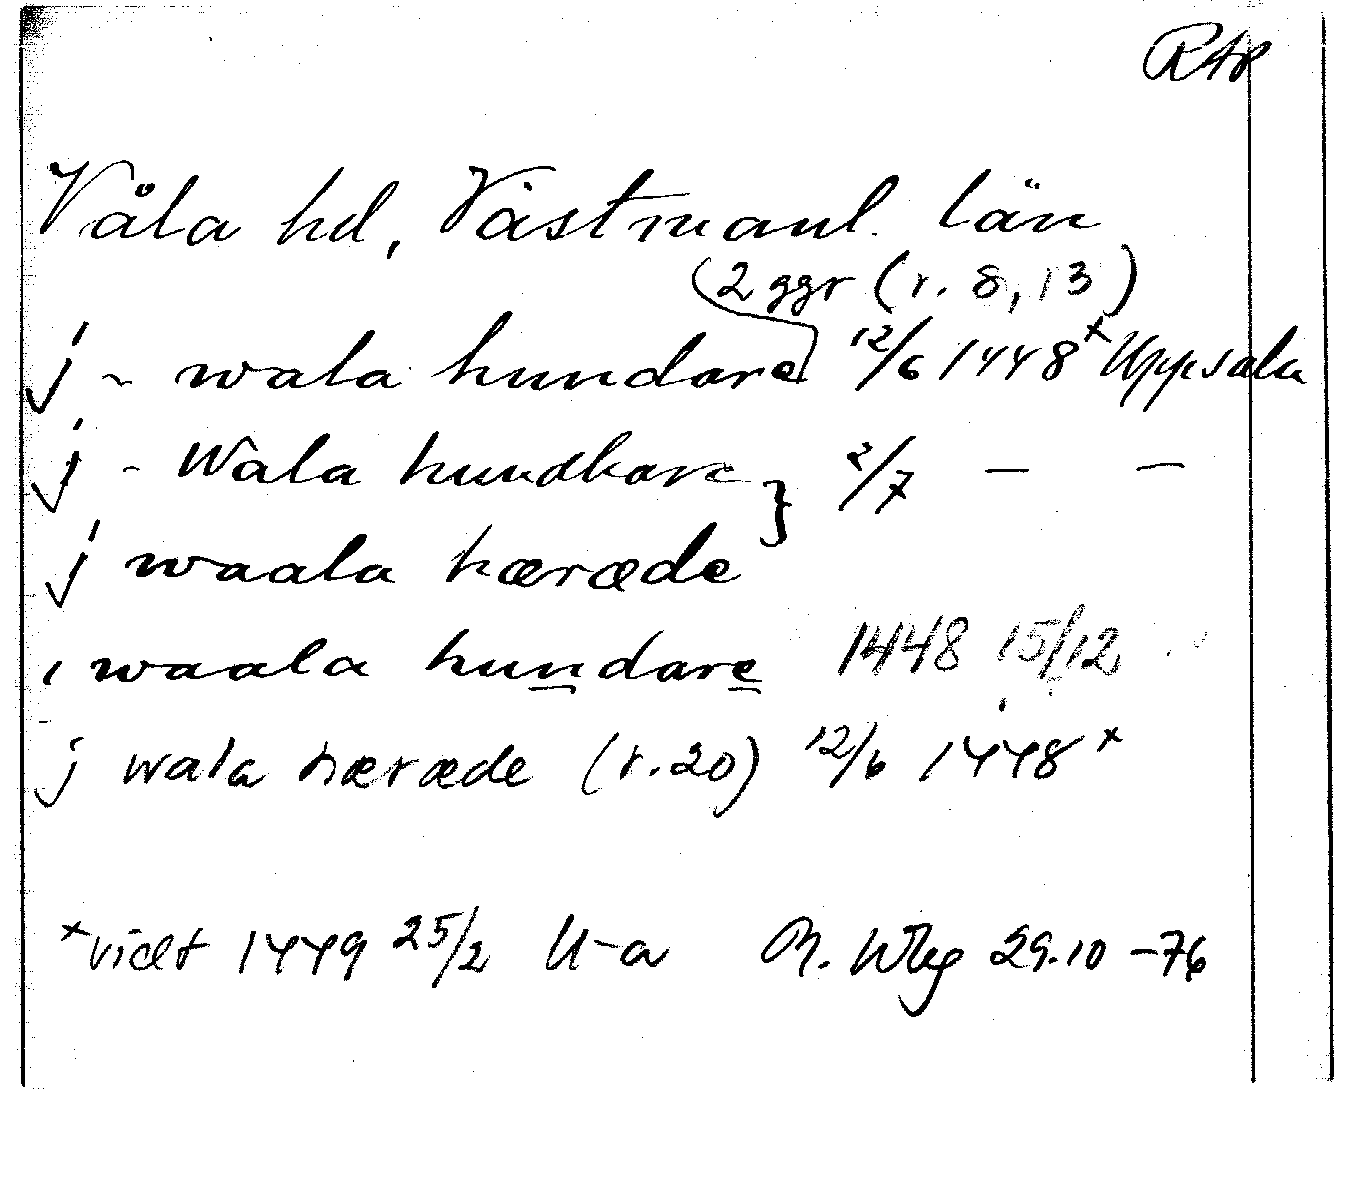 RAp
Våla hd, Västmanl. län
(2 ggr (r. 8, 13)
j - wala hundare) 12/6 1448x Uppsala
j - Wala hundhare } 2/7 — —
j waala hæræde
i waala hundare 1448 15/12
j wala hæræde (r. 20) 12/6 1448x
x vidt 1449 25/2 U-a N. Wbg 29.10 -76